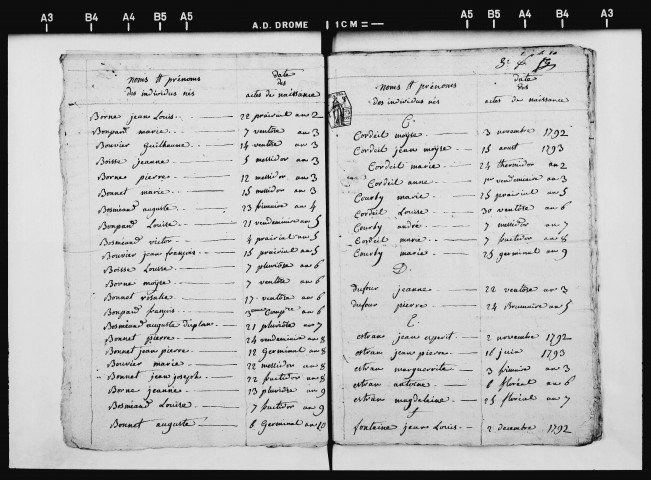 A3 B4 A4 B5 A5 A.D. DROME 1CM A5 B5 A4 B4 A3
noms et prénoms
des individus nés
date
des
actes de naissance
Borne jean Louis 22 prairial an 2
Bonpard marie 7 ventose an 3
Bouvier guilhaume 14 ventose an 3
Boisse jeanne 5 messidor an 3
Borne pierre 12 messidor an 3
Bonnet marie 15 messidor an 3
auguste 23 frimaire an 4
Bonpard Louise 21 vendemiaire an 5
victor 4 prairial an 5
Bouvier jean françois 15 prairial an 5
Boisse Louise 7 pluviose an 6
Borne moÿse 7 ventose an 6
Bonnet rosalie 17 ventose an 6
Bonpard françois an 6
auguste 21 pluviose an 7
Bonnet pierre 24 vendemiaire an 8
Bonnet jean pierre 12 Germinal an 8
Bouvier marie 22 messidor an 8
Bonnet jean joseph 22 fructidor an 8
Borne jeanne 13 pluviose an 9
Louise 7 fructidor an 9
Bonnet auguste 6 Germinal an 10
noms et prénoms
des individus nés
date
des
actes de naissance
C.
Cordeil moÿse 3 novembre 1792
Cordeil jean moÿse 15 aoust 1793
Cordeil marie 24 thermidor an 2
Cordeil anne 1er vendemiaire an 3
Courby marie 25 prairial an 5
Cordeil Louise 30 ventose an 6
Courby andré 7 messidor an 7
Cordeil marie 7 fructidor an 8
Courby marie 25 germinal an 9
D.
dufour jeanne 22 ventose an 3
dufour pierre 24 Brumaire an 5
E.
estran jean esprit 2 novembre 1792
estran jean pierre 16 juin 1793
estran marguerite 3 frimaire an 3
estran antoine 6 floréal an 6
estran magdelaine 25 floréal an 7
f
fontaine jean Louis 2 decembre 1792